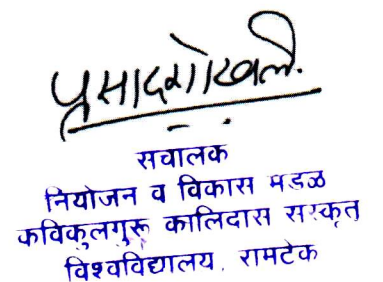 प्रसादगोखले.
सचालक
नियोजन व विकास मडळ
कविकुलगुरू कालिदास सस्कृत
विश्वविद्यालय, रामटेक